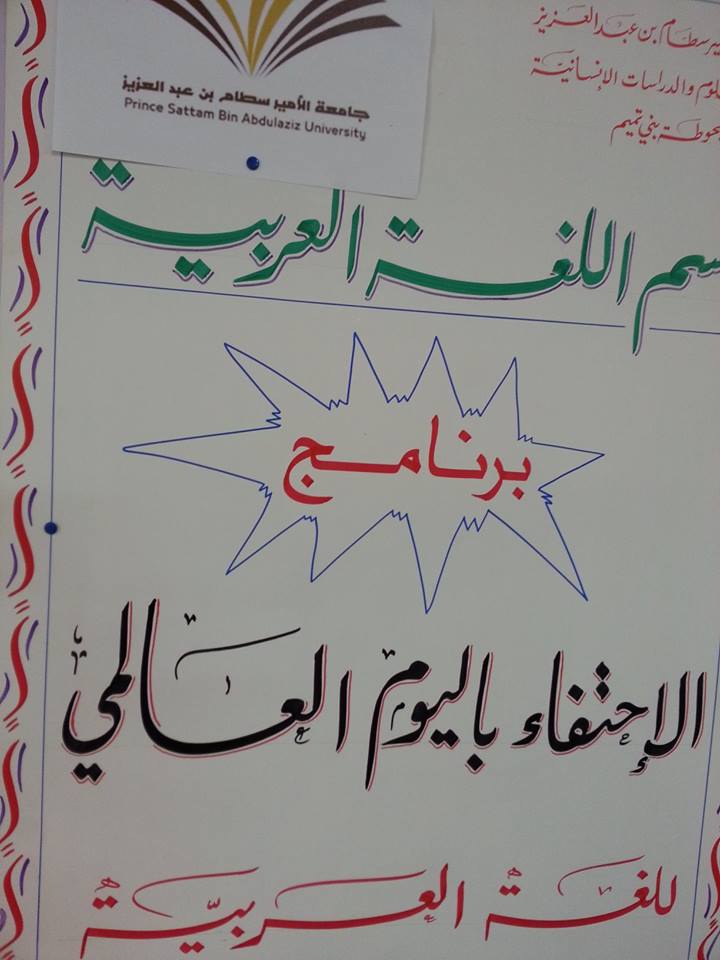 جامعة الأمير سطام بن عبد العزيز
Prince Sattam Bin Abdulaziz University
سطام بن عبد العزيز
والدراسات الإنسانية
بحوطة بني تميم
اللغة العربية
برنامج
الإحتفاء باليوم العالمي
للغة العربية